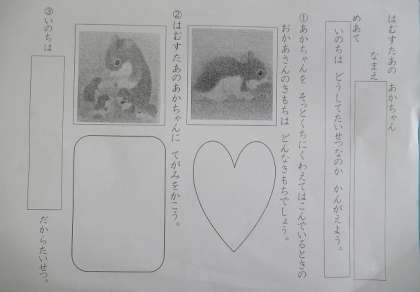 はむすたあの あかちゃん
なまえ
めあて
いのちは どうしてたいせつなのか かんがえよう。
①あかちゃんを そっとくちにくわえてはこんでいるときの
おかあさんのきもちは どんなきもちでしょう。
②はむすたあのあかちゃんに てがみをかこう。
③いのちは
だからたいせつ。